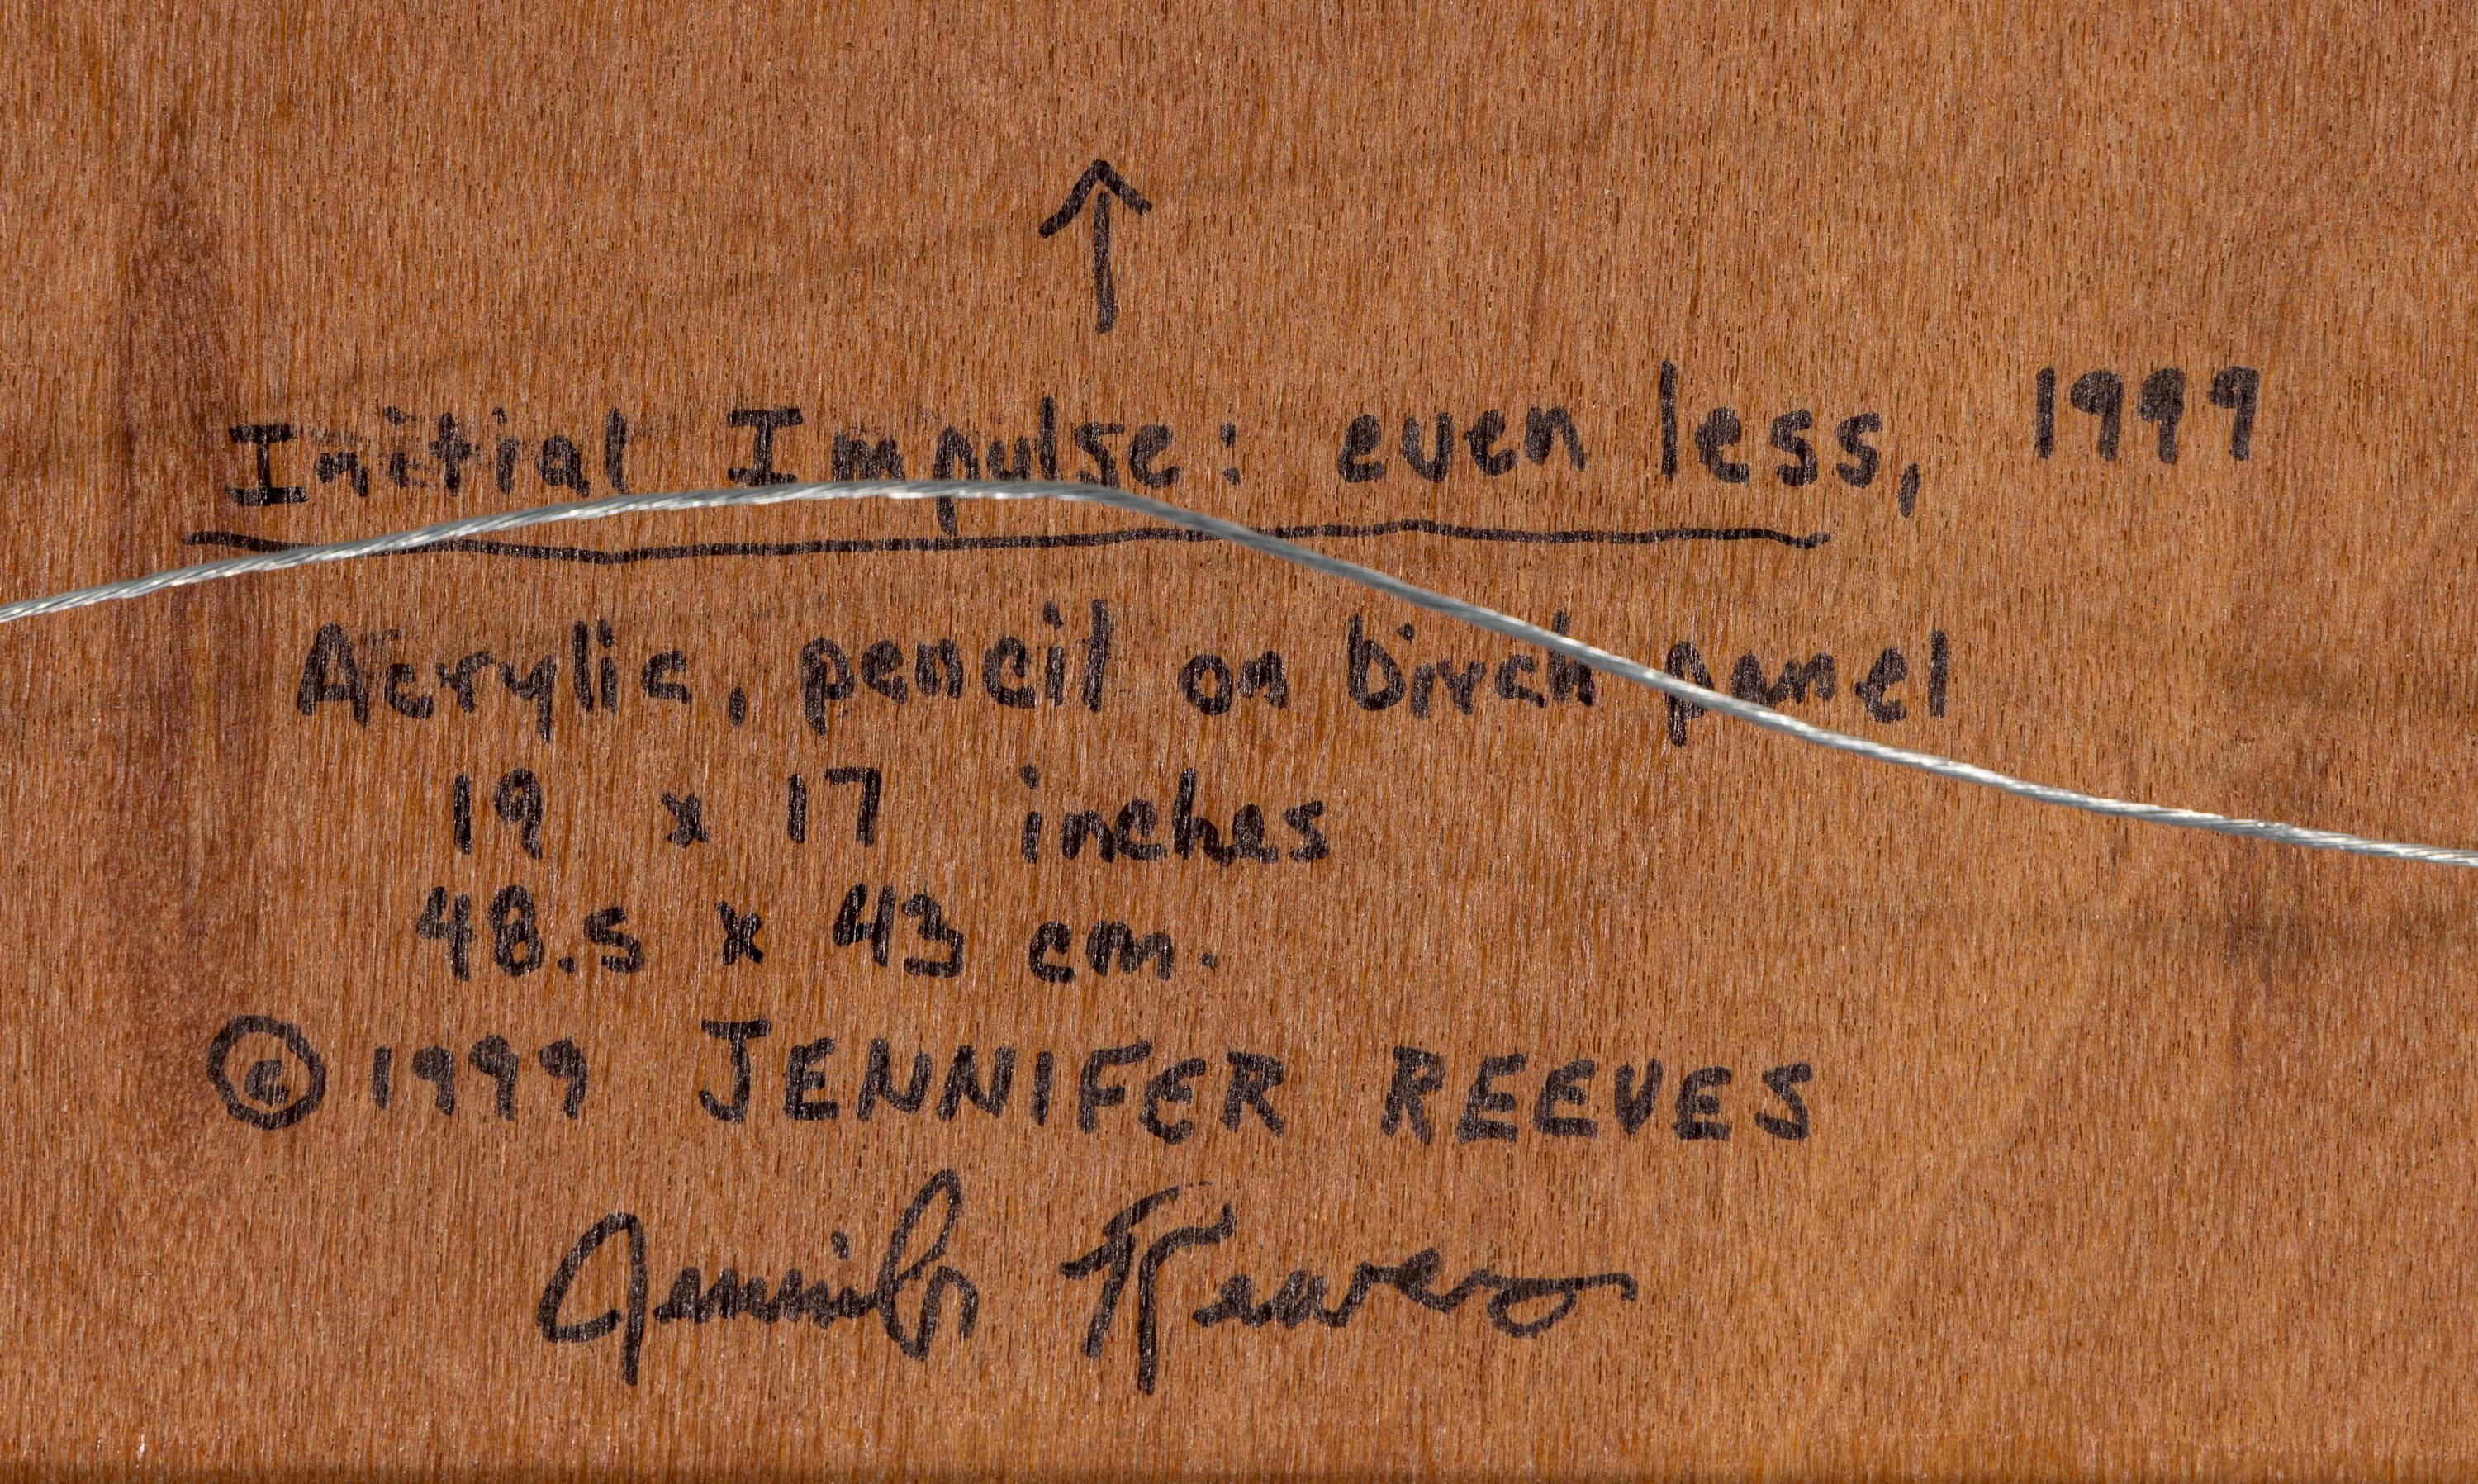 Initial Impulse: even less, 1999
Acrylic, pencil on birch panel
19 x 17 inches
48.5 x 43 cm.
© 1999 JENNIFER REEVES
Jennifer Reeves